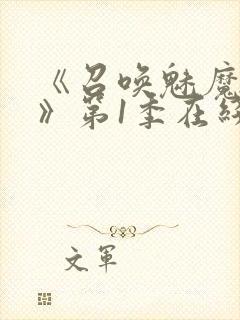 《召唤魅魔
》第1季在线
文军